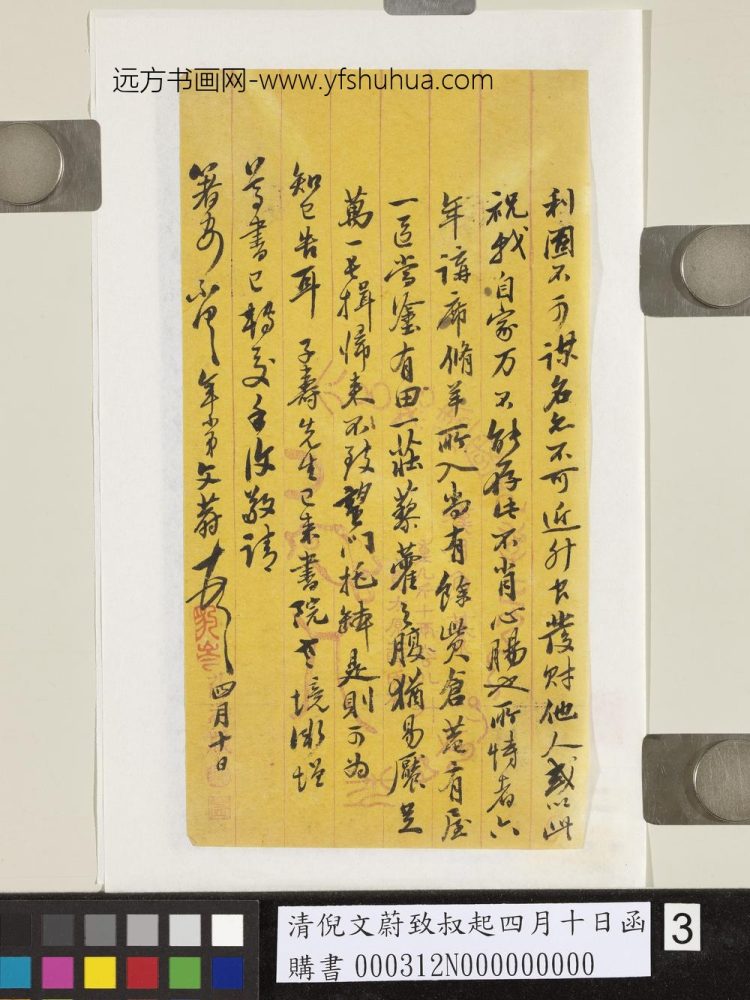 远方书画网-www.yfshuhua.com
利國不可謀名亦不可近升官發財他人或以此
祝我自家万不能存此不肖心腸也所恃者六
年講席脩羊所入尚有餘貲倉巷有屋
一區當塗有田一莊藜藿之腹猶易饜足
萬一長揖歸來不致望門托鉢是則可為
知己告耳 子壽先生已来書院老境漸增
尊書已轉交手復敬請
箸安 年小弟文蔚頓首 四月十日
清倪文蔚致叔起四月十日函
購書 000312N000000000
3